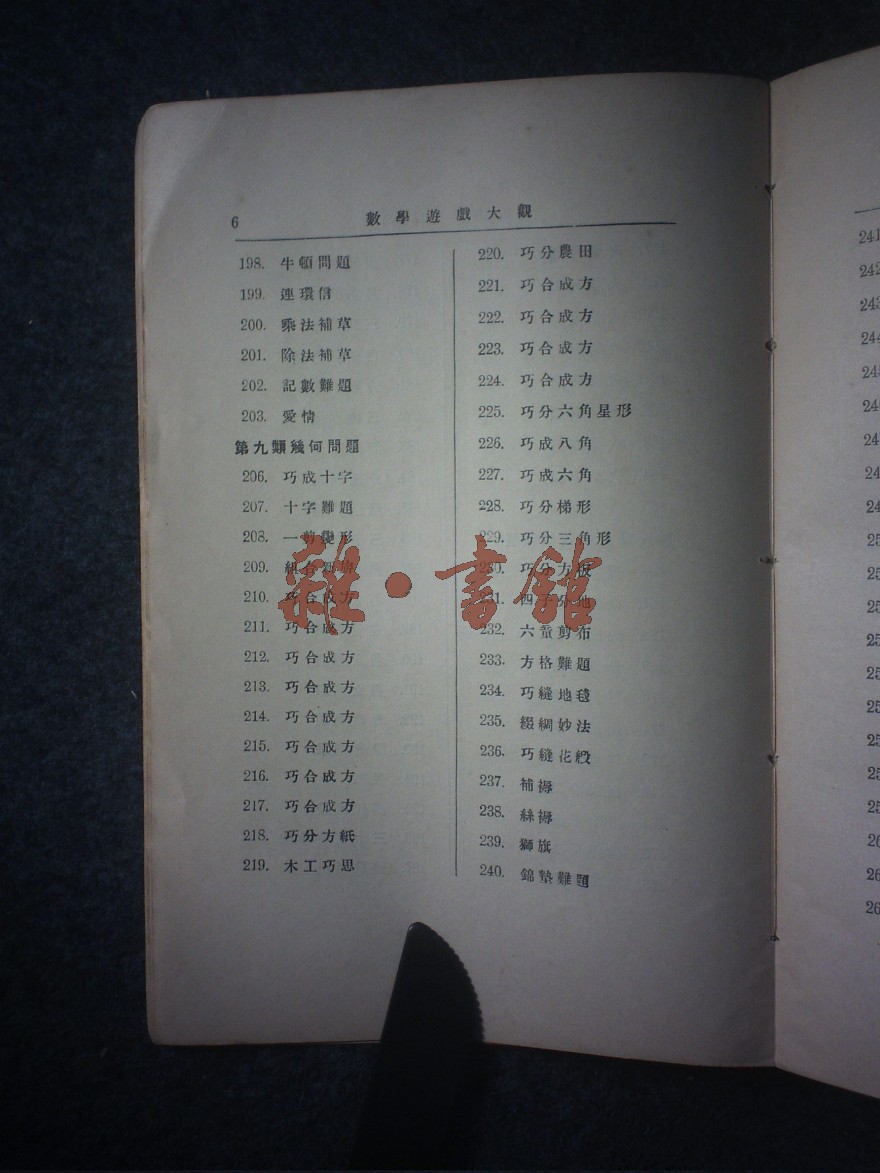 6
數學遊戲大觀
198. 牛頓問題
199. 連環信
200. 乘法補草
201. 除法補草
202. 記數難題
203. 愛情
第九類幾何問題
206. 巧成十字
207. 十字難題
208. 一剪變形
209. 組合
210. 巧合成方
211. 巧合成方
212. 巧合成方
213. 巧合成方
214. 巧合成方
215. 巧合成方
216. 巧合成方
217. 巧合成方
218. 巧分方紙
219. 木工巧思
220. 巧分農田
221. 巧合成方
222. 巧合成方
223. 巧合成方
224. 巧合成方
225. 巧分六角星形
226. 巧成八角
227. 巧成六角
228. 巧分梯形
229. 巧分三角形
230. 巧分方板
231. 四子分地
232. 六童剪布
233. 方格難題
234. 巧縫地毯
235. 綴綢妙法
236. 巧縫花緞
237. 補褥
238. 絲褥
239. 獅旗
240. 錦墊難題
雜·書館
241
242
243
244